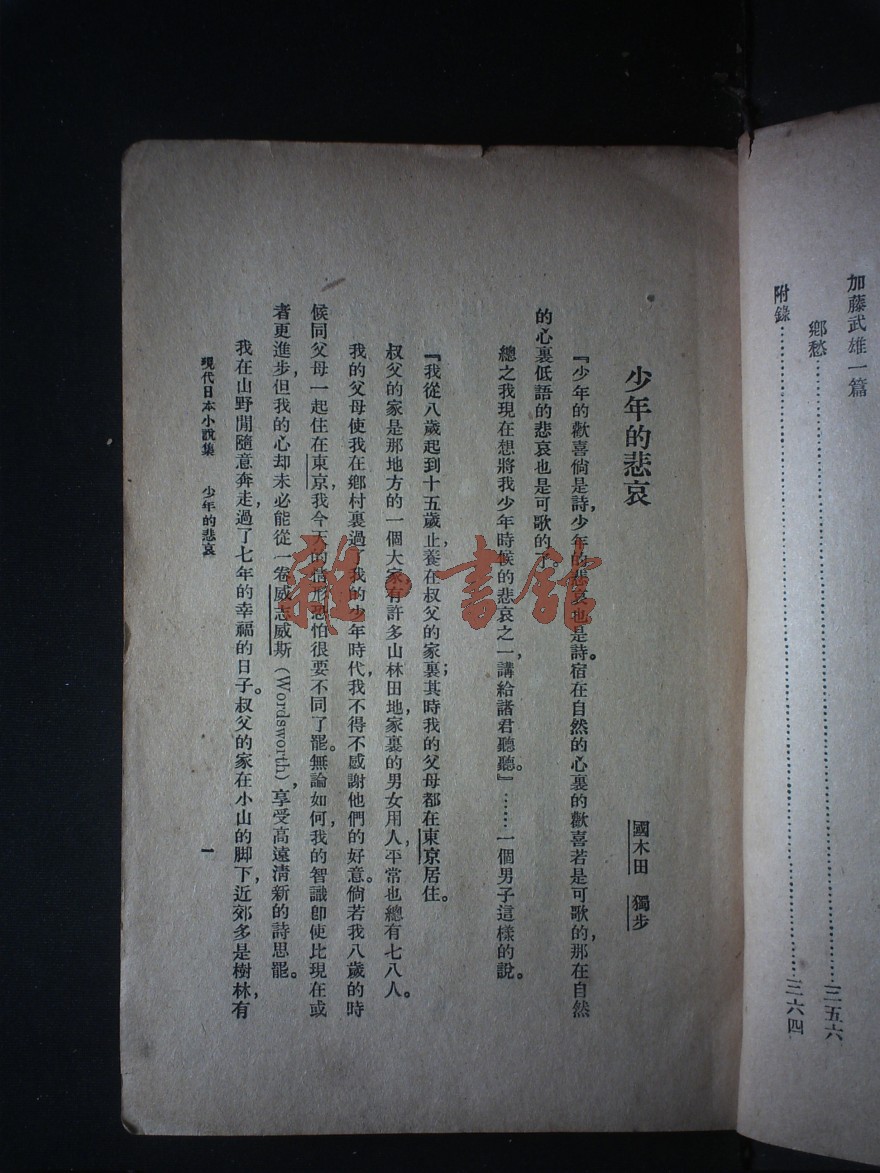 加藤武雄一篇
鄉愁……………………………………三五六
附錄……………………………………三六四
少年的悲哀
國木田　獨步
『少年的歡喜倘是詩，少年的悲哀也是詩。宿在自然的心裏的歡喜若是可歌的，那在自然
的心裏低語的悲哀也是可歌的了。
總之我現在想將我少年時候的悲哀之一，講給諸君聽聽。』……一個男子這樣的說。
『我從八歲起到十五歲止，養在叔父的家裏；其時我的父母都在東京居住。
叔父的家是那地方的一個大家，有許多山林田地，家裏的男女用人，平常也總有七八人。
我的父母使我在鄉村裏過了我的少年時代，我不得不感謝他們的好意。倘若我八歲的時
候同父母一起住在東京，我今天的情形恐怕很要不同了罷。無論如何，我的智識卽使比現在或
者更進步，但我的心却未必能從一卷威志威斯(Wordsworth)，享受高遠清新的詩思罷。
我在山野間隨意奔走，過了七年的幸福的日子。叔父的家在小山的脚下，近郊多是樹林，有
現代日本小說集　少年的悲哀
一
雜·書館